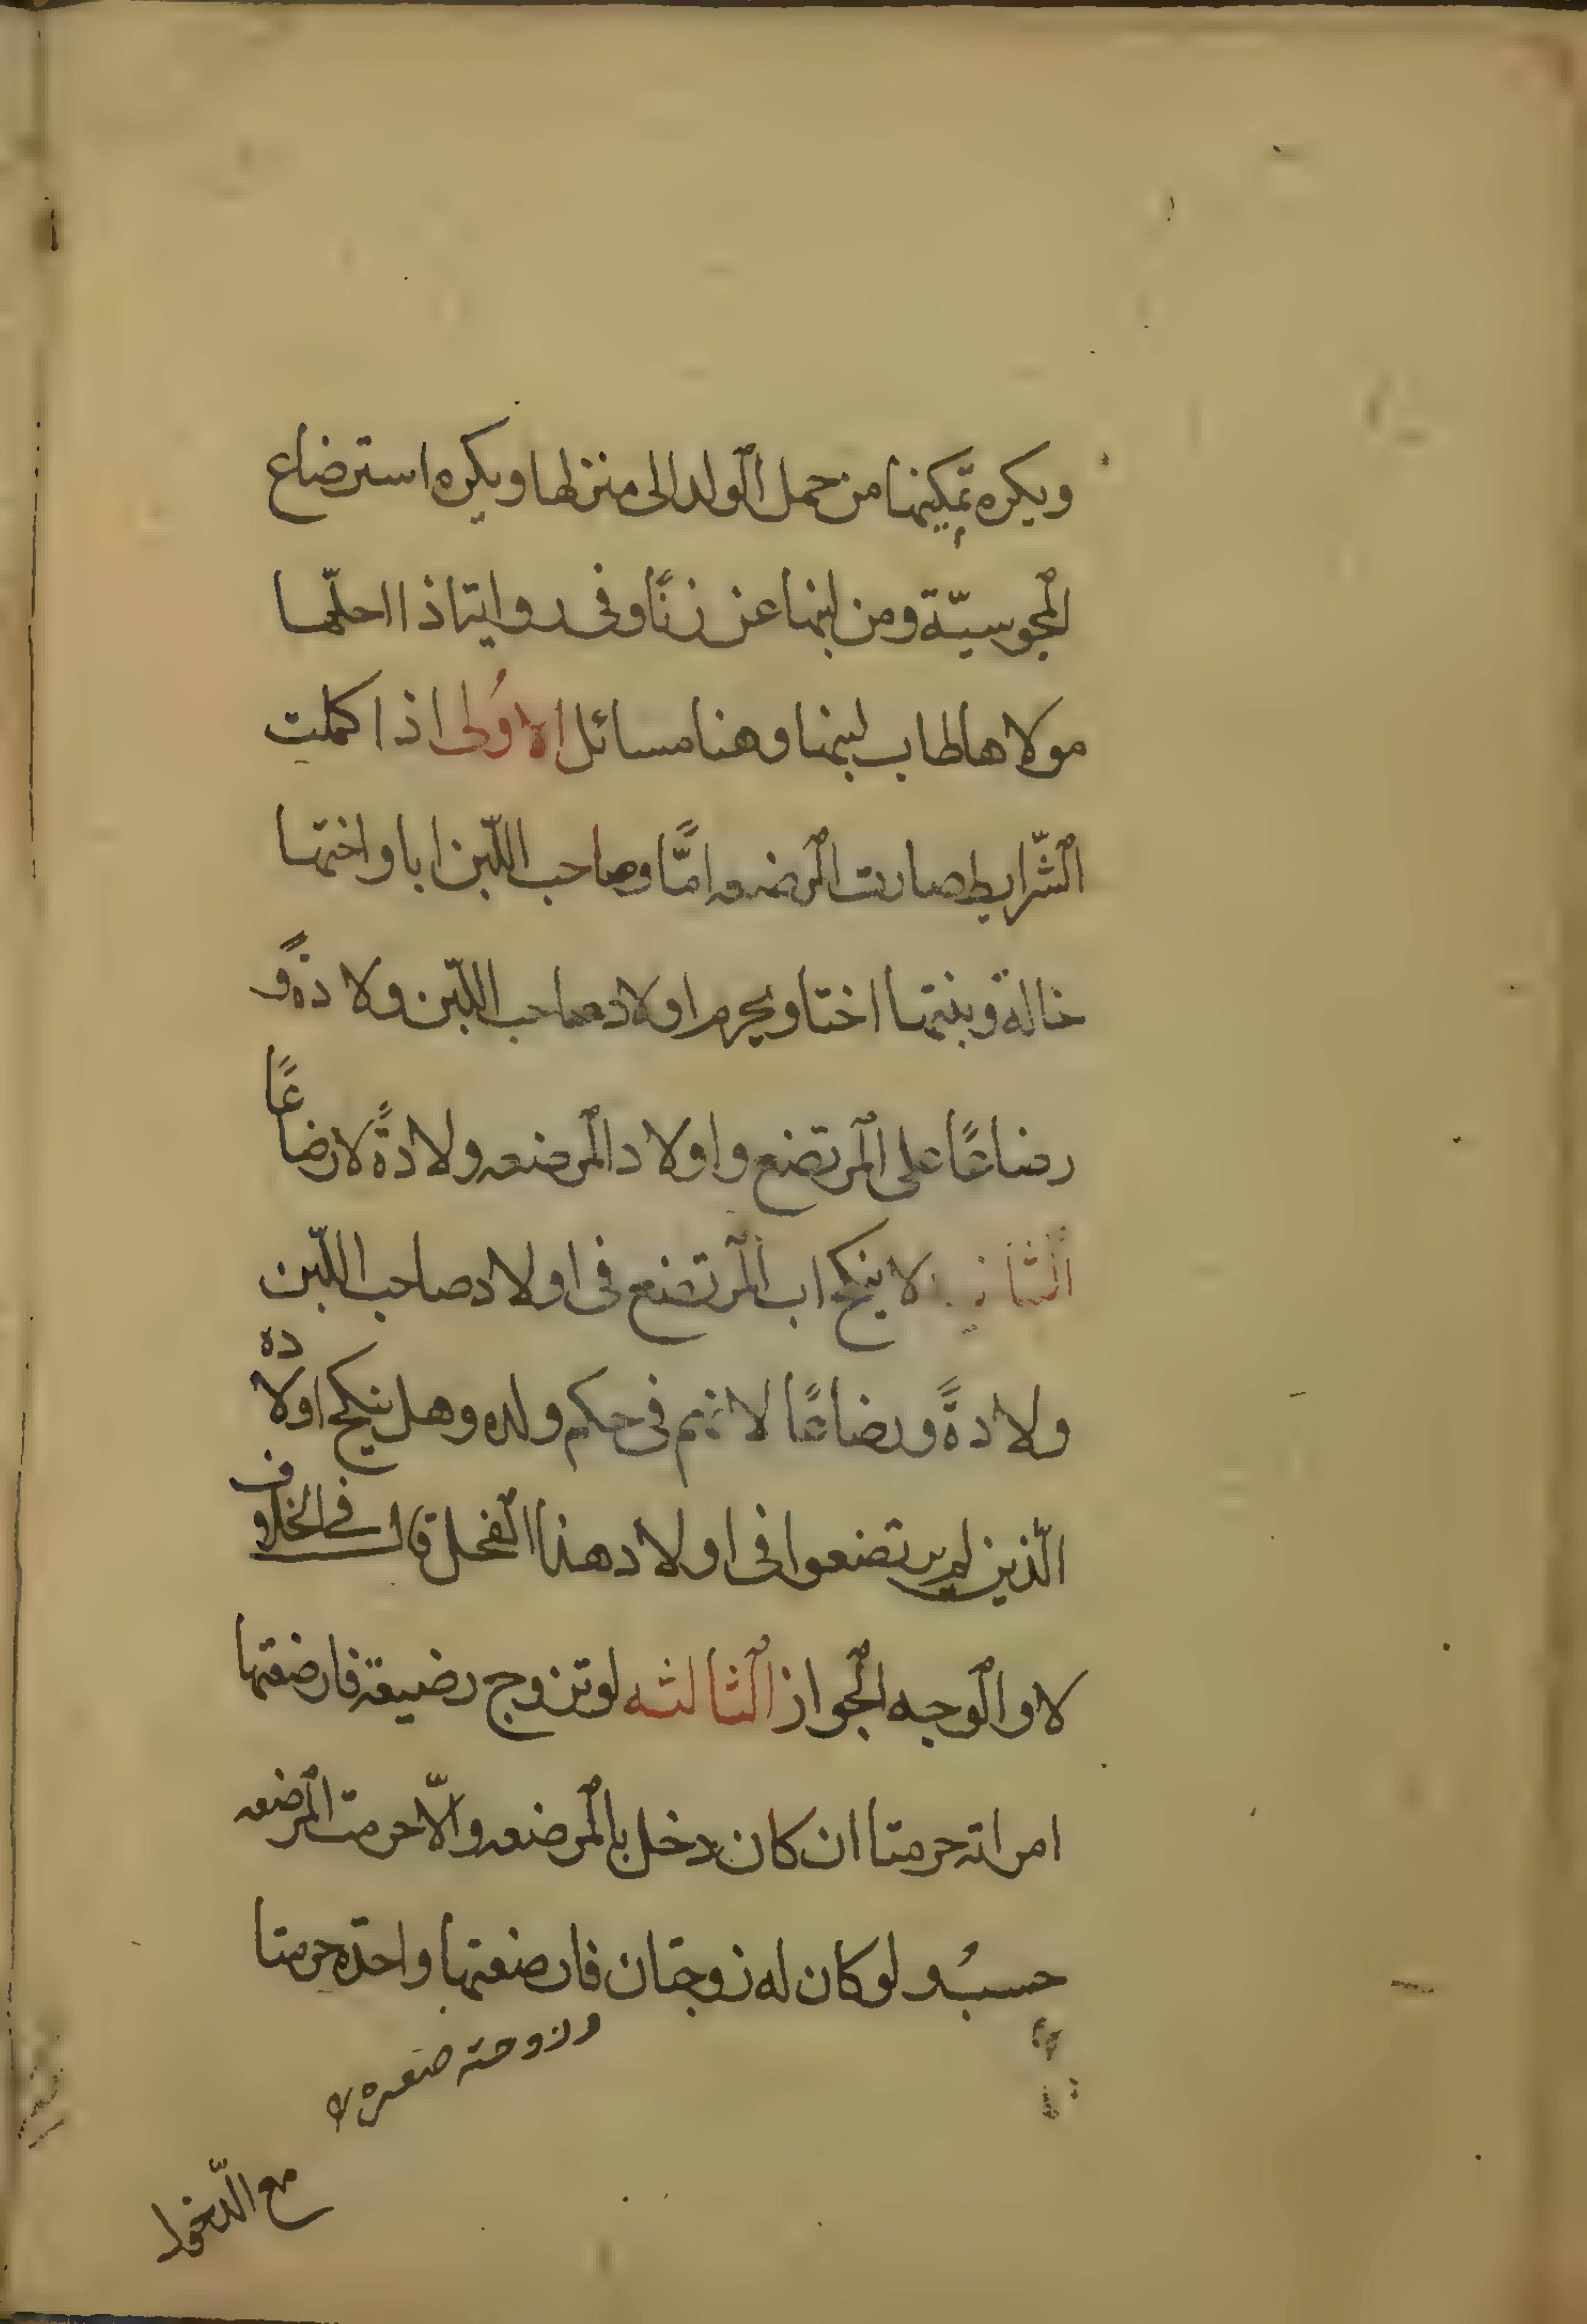 ويكره تمكينها من حمل الولد الى منزلها ويكره استرضاع
المجوسيّة ومن لبنها عن زنًا وفى رواية اذا احلّها
مولاها طاب لبنها وهنا مسائل الاُولى اذا كملت
الشّرايط صارت المرضعه امًّا وصاحب اللّبن ابا واختها
خالة وبنتها اختا ويحرم اولاد صاحب اللّبن ولادةً و
رضاعًا على المرتضع واولاد المرضعه ولادةً لا رضاعًا
الثانيه لا ينكح اب المرتضع فى اولاد صاحب اللّبن
ولادةً ورضاعًا لانهم فى حكم ولده وهل ينكح اولاده
الّذين لم يرتضعوا فى اولاد هذا الفحل قال فى الخلاف
لا والوجه الجواز الثالثه لو تزوج رضيعة فارضعتها
امراته حرمتا ان كان دخل بالمرضعه والّا حرمت المرضعه
حسبُ ولو كان له زوجتان فارضعتها واحدة حرمتا
وزوجته صغيرة
مع الدّخول